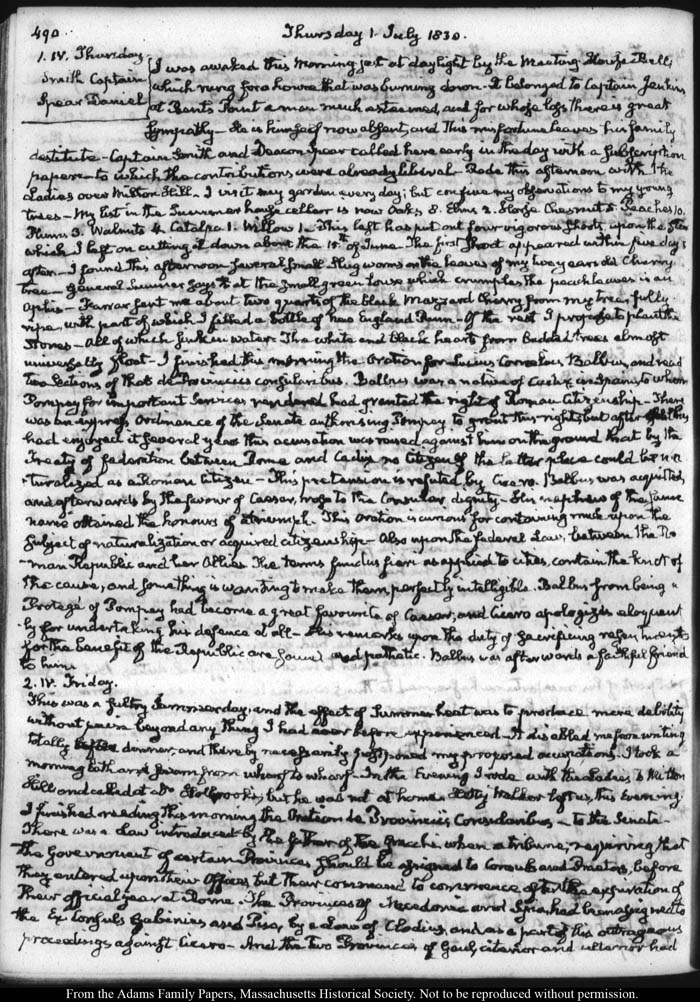 490
Thursday 1. July 1830.
1. IV. Thursday
Smith Captain
Spear Daniel
I was awaked this morning just at daylight by the Meeting House Bell,
which rung for a house that was burning down. It belonged to Captain Jenkins
at Bents Point a man much esteemed, and for whose loss there is great
Sympathy. He is himself now absent, and this misfortune leaves his family
destitute. Captain Smith and Deacon Spear called here early in the day with a subscription
paper to which the contributions were already liberal. Rode this afternoon with the
Ladies over Milton Hill. I visit my garden every day; but confine my observations to my young
trees. My list in the Summer house cellar is now Oaks 8. Elms 2. Horse Chesnut 5. Peaches 10.
Plums 3. Walnuts 4. Catalpa 1. Willow 1. This last has put out four vigorous shoots, upon the stem
which I left on cutting it down about the 15th of June. The first shoot appeared within five days
after. I found this afternoon several small slug worms on the leaves of my two years old Cherry
tree. General Sumner says that the small green louse which crumples the peach leaves is an
Aphis. Farrar sent me about two quarts of the black Mazzard Cherry from my tree, fully
ripe, with part of which I filled a bottle of New England Rum. Of the rest I propose to plant the
stones. All of which sink in water. The white and black hearts from budded trees almost
universally float. I finished this morning the Oration for Lucius Cornelius Balbus, and read
two Sections of that de Provinciis consularibus. Balbus was a native of Cadiz in Spain, to whom
Pompey for important services rendered had granted the right of Roman Citizenship. There
was an express Ordinance of the Senate authorising Pompey to grant this right, but after Balbus
had enjoyed it several years this accusation was raised against him on the ground that by the
Treaty of federation between Rome and Cadiz no citizen of the latter place could be na-
turalized as a Roman Citizen. This pretension is refuted by Cicero. Balbus was acquitted,
and afterwards by the favour of Caesar, rose to the Consular dignity. His nephew of the same
name obtained the honours of a triumph. This oration is curious for containing much upon the
subject of naturalization or acquired citizenship. Also upon the federal Law, between the Ro-
man Republic and her Allies. The terms fundus fieri as applied to cities, contain the knot of
the cause, and something is wanting to make them perfectly intelligible. Balbus from being a
Protegé of Pompey had become a great favourite of Caesar, and Cicero apologizes eloquent
ly for undertaking his defence at all. His remarks upon the duty of sacrificing resentments
for the benefit of the Republic are and pathetic. Balbus was afterwards a faithful friend
to him.
2. IV. Friday.
This was a sultry Summer day, and the effect of Summer heat was to produce mere debility
without pain beyond any thing I had ever before experienced. It disabled me from writing
totally after dinner, and thereby necessarily postponed my proposed occupations. I took a
morning bath and swam from wharf to wharf. In the Evening I rode with the Ladies to Milton
Hill and called at Dr Holbrook's, but he was not at home. Walker left us, this Evening.
I finished reading this morning the Oration de Provinciis Consularibus to the Senate.
There was a Law introduced by the father of the Gracchi, when a tribune, requiring that
the Government of certain Provinces should be assigned to Consuls and Praetors, before
they entered upon their Offices but their command to commence after the expiration of
their official year at Rome. The Provinces of Macedonia and Syria had been assigned to
the Ex Consuls Gabinius and Piso, by a Law of Clodius, and as a part of his outrageous
proceedings against Cicero. And the two Provinces of Gaul, citerior and ulterior had
From the Adams Family Papers, Massachusetts Historical Society. Not to be reproduced without permission.